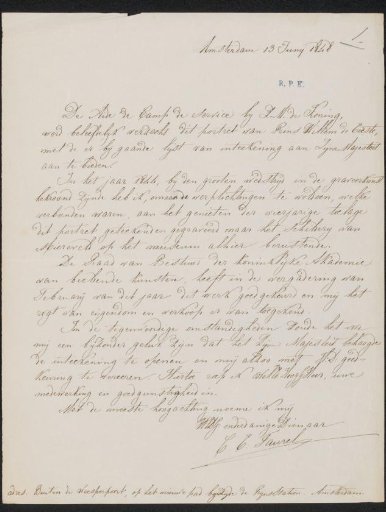 1.
Amsterdam 13 Juny 1848
R.P.K.
De Aide de Camp de Service by Z.M. de Koning,
word beleefdelyk verzocht dit portret van Prins Willem de Eerste,
met de er by gaande lyst van intekening aan Zyne Majesteit
aan te bieden.
In het jaar 1844, by den grooten wedstryd in de graveerkunst
bekroond zynde heb ik, onder de verplichtingen te voldoen, welke
verbonden waren, aan het genieten der vierjarige toelage
dit portret geteekend en gegraveerd naar het Schildery van
Miereveld op het museum alhier berustende.
De Raad van Bestuur der Koninklyke Akademie
van beeldende kunsten, heeft in de vergadering van
February van dit jaar dit werk goedgekeurd en my het
regt van eigendom en verkoop er van begeven
In de tegenwoordige omstandigheden zoude het voor
my een byzonder geluk zyn dat het Zyn Majesteit behaagde
de inteekening te openen en my alzoo met goed-
keuring te vereeren. Hierto roep ik uwe
medewerking en goedgunstigheid in.
Met de meeste hoogachting noeme ik my
onderdanige Dienaar
C. E. Taurel
adres. Buiten de Weesperpoort op het nieuwe pad de Rynstation. Amsterdam